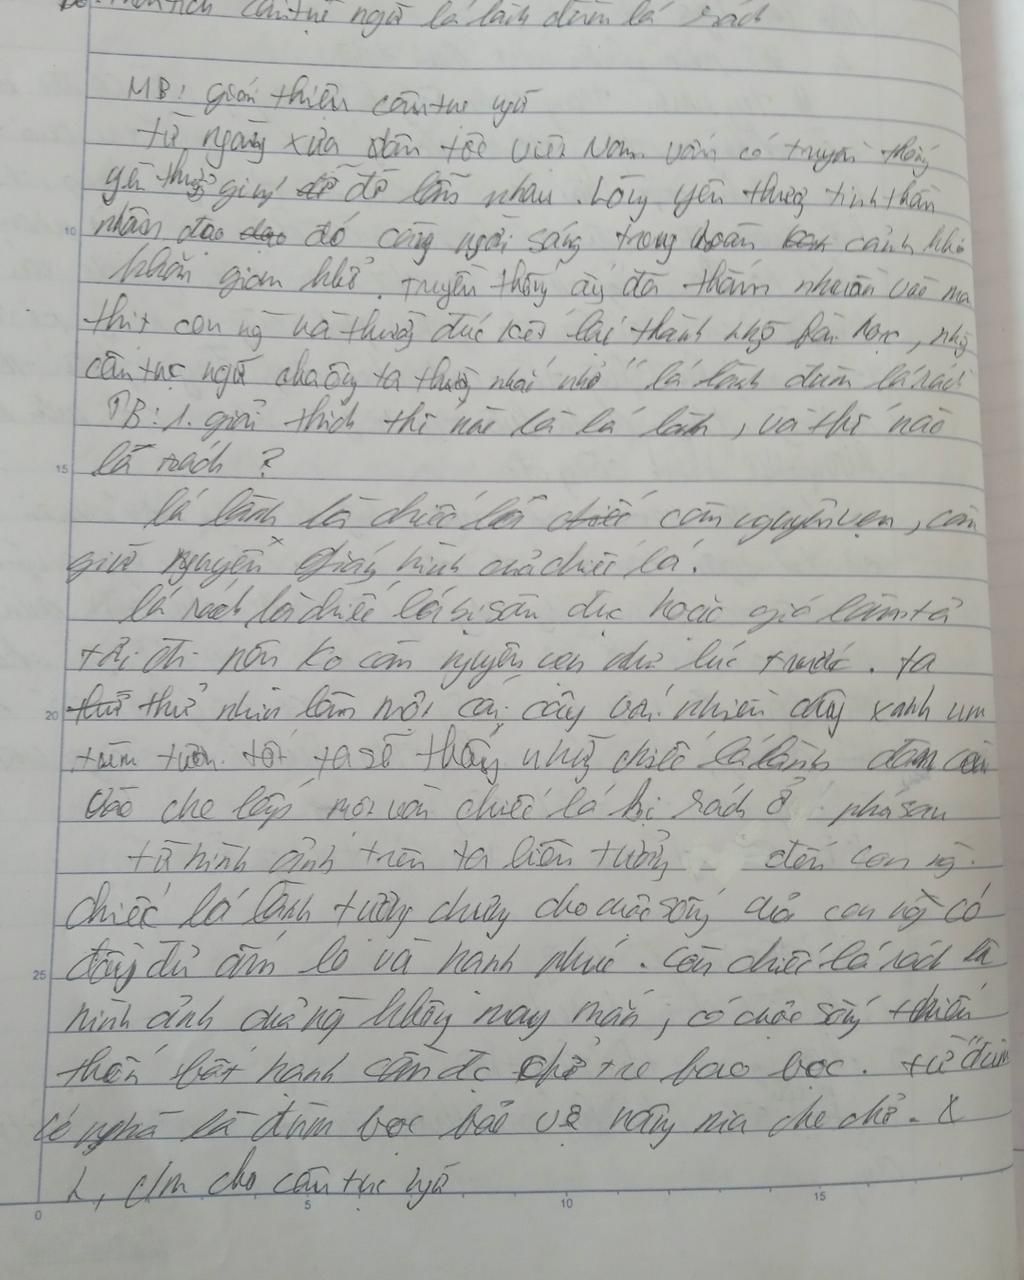 Đề: Phân tích câu tục ngữ lá lành đùm lá rách
MB: giới thiệu câu tục ngữ
từ ngày xưa dân tộc Việt Nam vốn có truyền thống
yêu thương giúp đỡ lẫn nhau. Lòng yêu thương tinh thần
nhân đạo đó càng ngời sáng trong hoàn cảnh khó
khăn gian khổ. truyền thống ấy đã thấm nhuần vào máu
thịt con ng và thường đúc kết lại thành nhg bài học, nhg
câu tục ngữ cha ông ta thường nhắc nhở "lá lành đùm lá rách
TB: 1. giải thích thế nào là lá lành, và thế nào
là rách ?
lá lành là chiếc lá còn nguyên vẹn, còn
giữ nguyên dáng hình của chiếc lá.
lá rách là chiếc lá bị sâu đục hoặc gió làm tả
tơi đi nên ko còn nguyên vẹn như lúc trước. ta
thử nhìn lên một cái cây với nhiều cây xanh um
tùm tươi tốt ta sẽ thấy những chiếc lá lành đan cài
vào che lấp một vài chiếc lá bị rách ở phía sau
từ hình ảnh trên ta liên tưởng đến con ng.
chiếc lá lành tượng chưng cho cuộc sống của con ng có
đầy đủ ấm lo và hạnh phúc. còn chiếc lá rách là
hình ảnh của ng không may mắn, có cuộc sống thiếu
thốn bất hạnh cần đc chở tre bao bọc. từ "đùm
có nghĩa là đùm bọc bảo vệ nâng niu che chở.
2, c/m cho câu tục ngữ